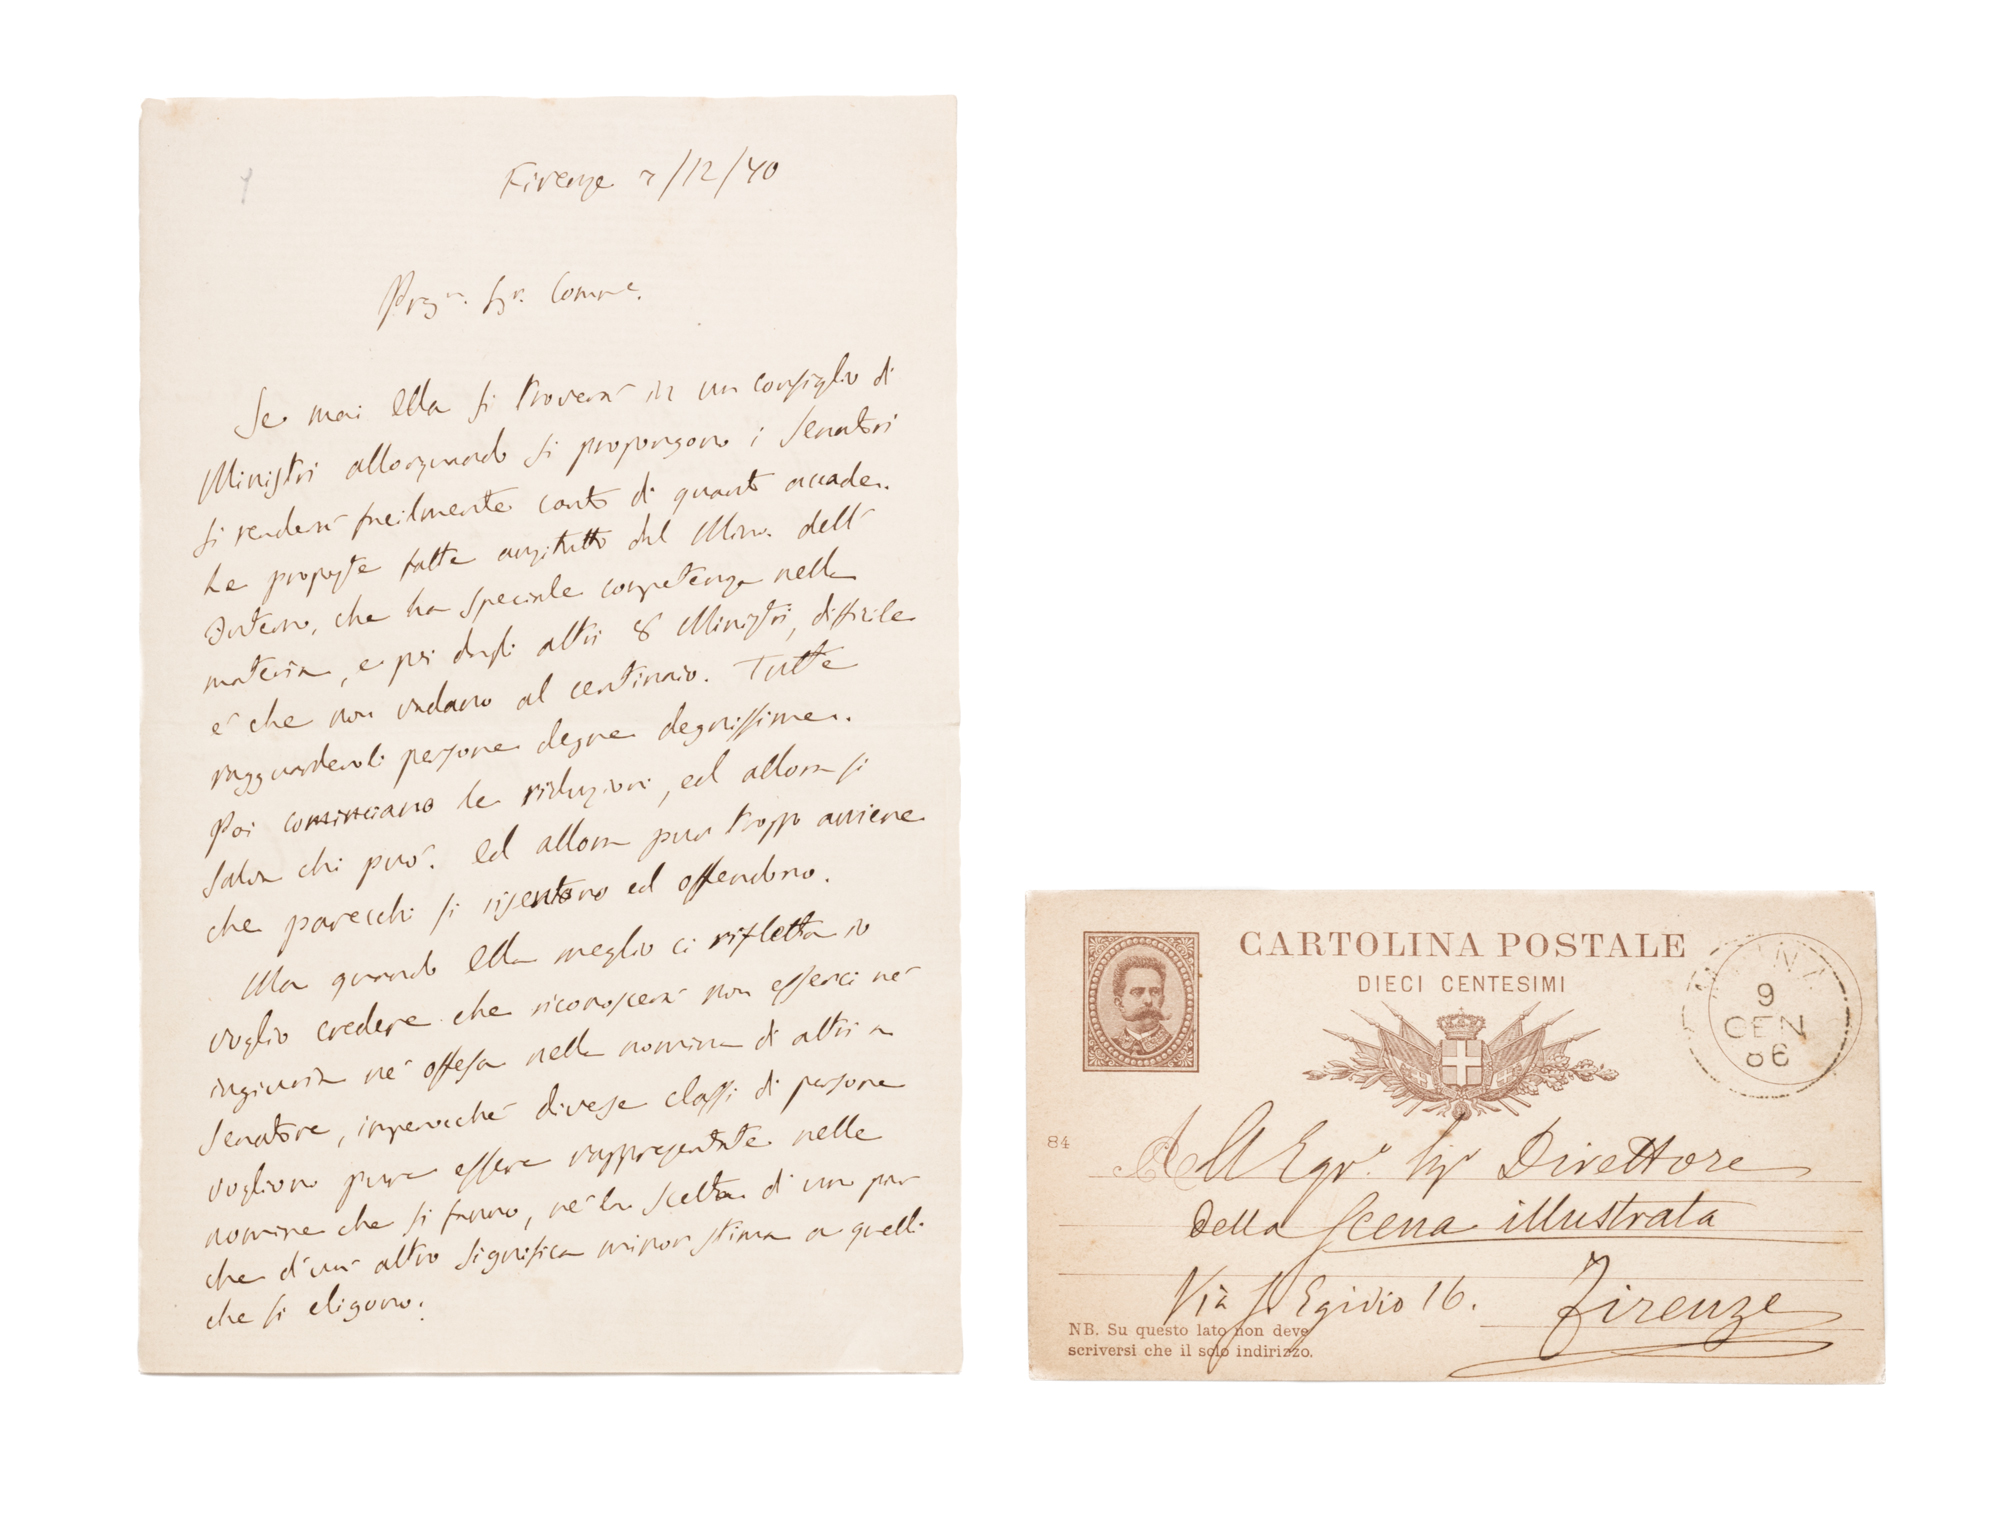 Firenze 7/12/90
Preg.mo Sgr. Comm.e
Se mai Ella si troverà in un consiglio di
Ministri allorquando si propongono i Senatori
si renderà facilmente conto di quanto accade.
Le proposte fatte anzitutto dal Min. dell'
Interno, che ha speciale competenza nella
materia, e poi dagli altri 8 Ministri, difficile
è che non vadano al centinaio. Tutte
ragguardevoli persone degne degnissime.
Poi cominciano le riduzioni, ed allora si
salva chi può. Ed allora pur troppo avviene
che parecchi si risentono ed offendono.
Ma quando Ella meglio ci rifletta io
voglio credere che riconoscerà non esserci né
ingiuria né offesa nella nomina di altri a
Senatore, imperocché diverse classi di persone
vogliono pure essere rappresentate nelle
nomine che si fanno, né la scelta di uno più
che d'un altro significa minor stima a quelli
che si eligono.
CARTOLINA POSTALE
DIECI CENTESIMI
9
GEN
86
84
All Egr.o Sigr Direttore
della Scena illustrata
Via S. Egidio 16. Firenze
NB. Su questo lato non deve
scriversi che il solo indirizzo.